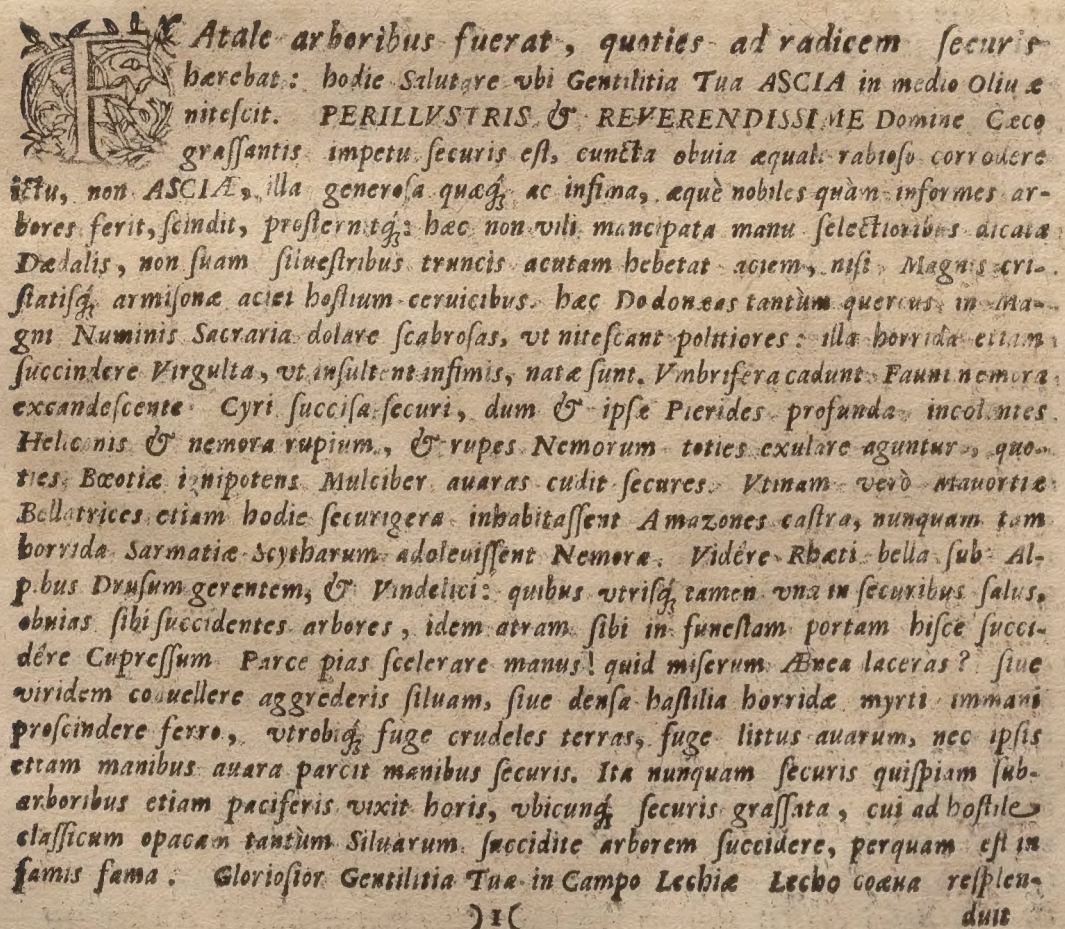 FAtale arboribus fuerat, quoties ad radicem ſecuris
hærebat: hodie Salutare vbi Gentilitia Tua ASCIA in medio Oliuæ
niteſcit. PERILLVSTRIS & REVERENDISSIME Domine Cæco
graſſantis impetu ſecuris eſt, cuncta obuia æquali rabioſo corrodere
ictu, non ASCIÆ, illa generoſa quæq́; ac infima, æquè nobiles quàm informes ar-
bores ferit, ſcindit, proſternitq́;: hæc non vili mancipata manu ſelectioribus dicata
Dædalis, non ſuam ſilueſtribus truncis acutam hebetat aciem, niſi Magnis cri-
ſtatiſq́; armiſonæ aciei hoſtium ceruicibus. hæc Dodonæas tantùm quercus in Ma-
gni Numinis Sacraria dolare ſcabroſas, vt niteſcant politiores: illa horrida etiam
ſuccindere Virgulta, vt inſultent infimis, natæ ſunt. Vmbrifera cadunt Fauni nemora
excandeſcente Cyri ſucciſa ſecuri, dum & ipſæ Pierides profunda incolentes
Heliconis & nemora rupium, & rupes Nemorum toties exulare aguntur, quo-
ties Bœotiæ ignipotens Mulciber auaras cudit ſecures. Vtinam verò Mauortiæ
Bellatrices etiam hodie ſecurigera inhabitaſſent Amazones caſtra, nunquam tam
horrida Sarmatiæ Scytharum adoleuiſſent Nemora. Vidêre Rhæti bella ſub Al-
pibus Druſum gerentem, & Vindelici: quibus vtriſq́; tamen vna in ſecuribus ſalus,
obuias ſibi ſuccidentes arbores, idem atram ſibi in funeſtam portam hiſce ſucci-
dêre Cupreſſum Parce pias ſcelerare manus! quid miſerum Ænea laceras? ſiue
viridem conuellere aggrederis ſiluam, ſiue denſa haſtilia horridæ myrti immani
proſcindere ferro, vtrobiq́; fuge crudeles terras, fuge littus auarum, nec ipſis
etiam manibus auara parcit manibus ſecuris. Ita nunquam ſecuris quiſpiam ſub
arboribus etiam paciferis vixit horis, vbicunq́; ſecuris graſſata, cui ad hoſtile
claſſicum opacam tantùm Siluarum ſuccidite arborem ſuccidere, perquam eſt in
famis fama. Glorioſior Gentilitia Tua in Campo Lechiæ Lecho coæua reſplen-
)1( duit